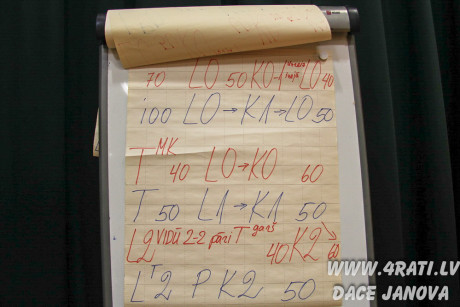 70 LO 50 KO LO 40
100 LO → K1 → LO 50
T MK 40 LO → KO 60
T 50 L1 → K1 50
L2 VIDŪ 2=2 pāri T garš 40 K2 60
L T 2 P K2 50
WWW.4RATI.LV
DACE JANOVA